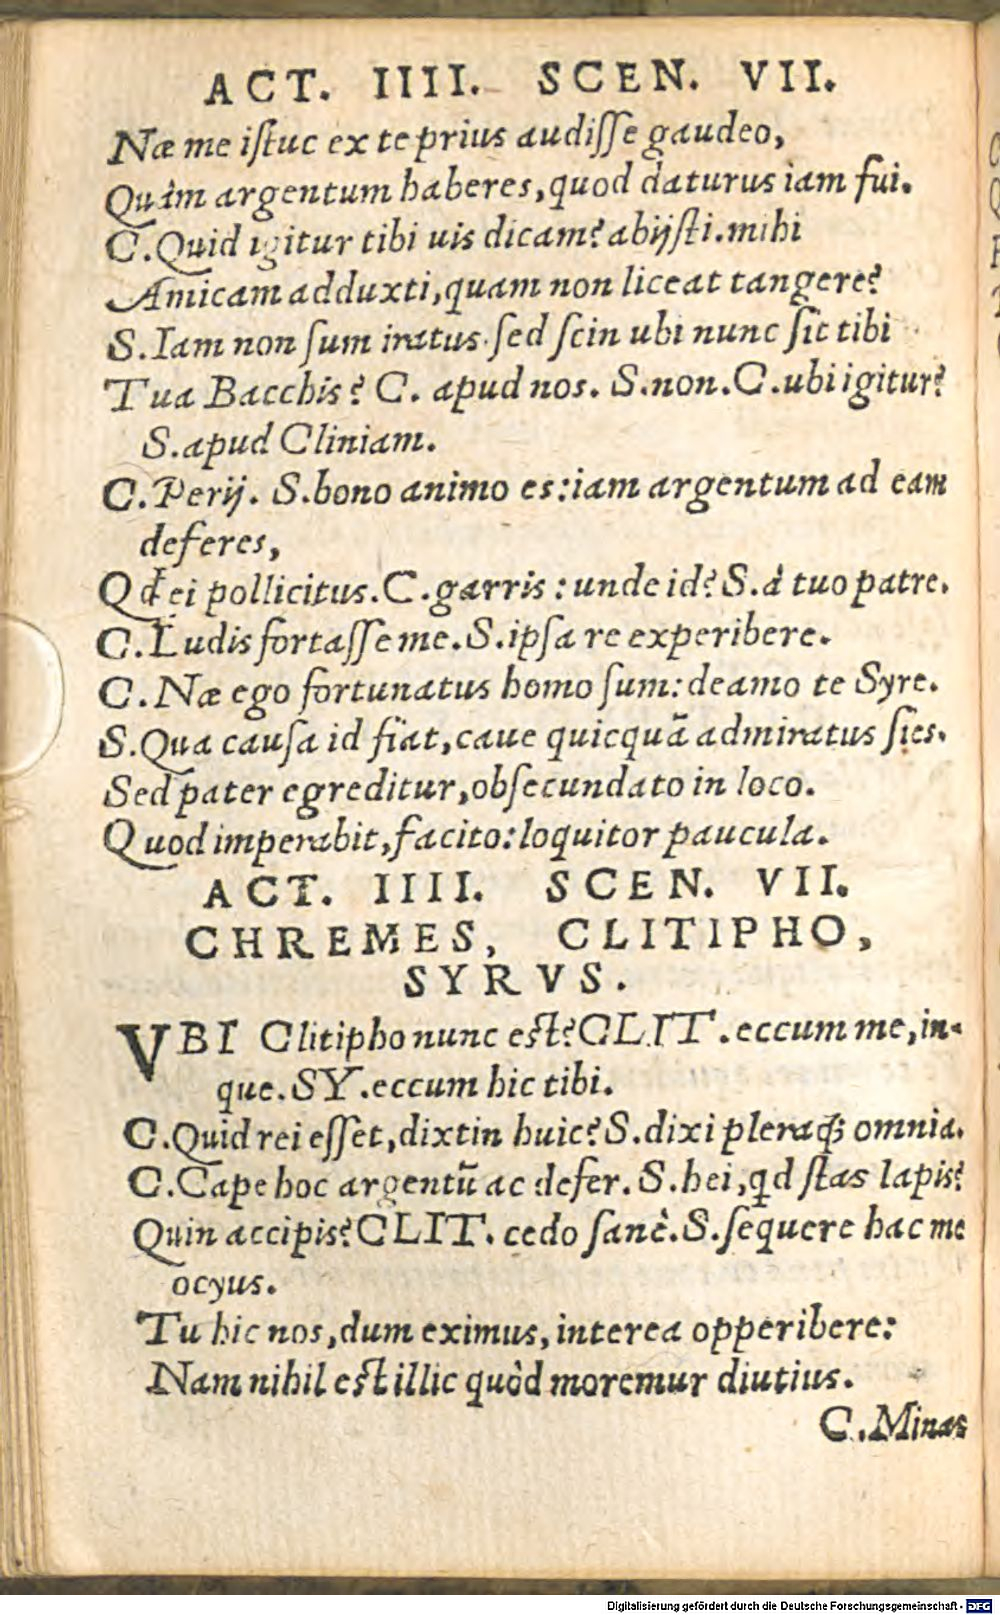 ACT. IIII. SCEN. VII.
Næ me iſtuc ex te prius audiſſe gaudeo,
Quàm argentum haberes, quod daturus iam fui.
C. Quid igitur tibi uis dicam? abijſti. mihi
Amicam adduxti, quam non liceat tangere?
S. Iam non ſum iratus. ſed ſcin ubi nunc ſit tibi
Tua Bacchis? C. apud nos. S. non. C. ubi igitur?
S. apud Cliniam.
C. Perij. S. bono animo es: iam argentum ad eam
deferes,
Qđ ei pollicitus. C. garris: unde id? S. à tuo patre.
C. Ludis fortaſſe me. S. ipſa re experibere.
C. Næ ego fortunatus homo ſum: deamo te Syre.
S. Qua cauſa id fiat, caue quicquã admiratus ſies.
Sed pater egreditur, obſecundato in loco.
Quod imperabit, facito: loquitor paucula.
ACT. IIII. SCEN. VII.
CHREMES, CLITIPHO,
SYRVS.
VBI Clitipho nunc eſt? CLIT. eccum me, in-
que. SY. eccum hic tibi.
C. Quid rei eſſet, dixtin huic? S. dixi pleraq; omnia.
C. Cape hoc argentũ ac defer. S. hei, qd ſtas lapis?
Quin accipis? CLIT. cedo ſanè. S. ſequere hac me
ocyus.
Tu hic nos, dum eximus, interea opperibere:
Nam nihil eſt illic quòd moremur diutius.
C. Minas
Digitalisierung gefördert durch die Deutsche Forschungsgemeinschaft - DFG